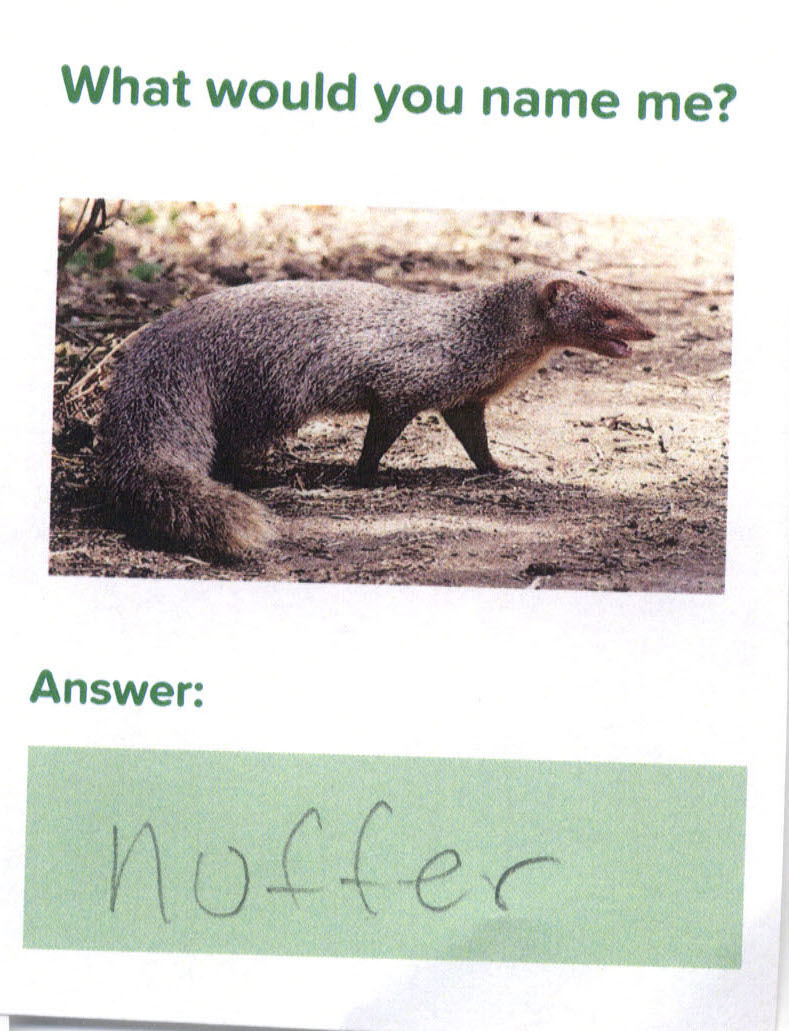 What would you name me?
Answer:
nuffer